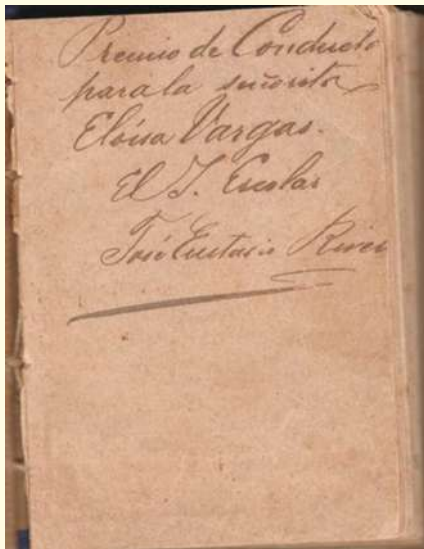 Premio de Conducta
para la señorita
Eloisa Vargas.
El I. Escolar
José Eustacio Rivera